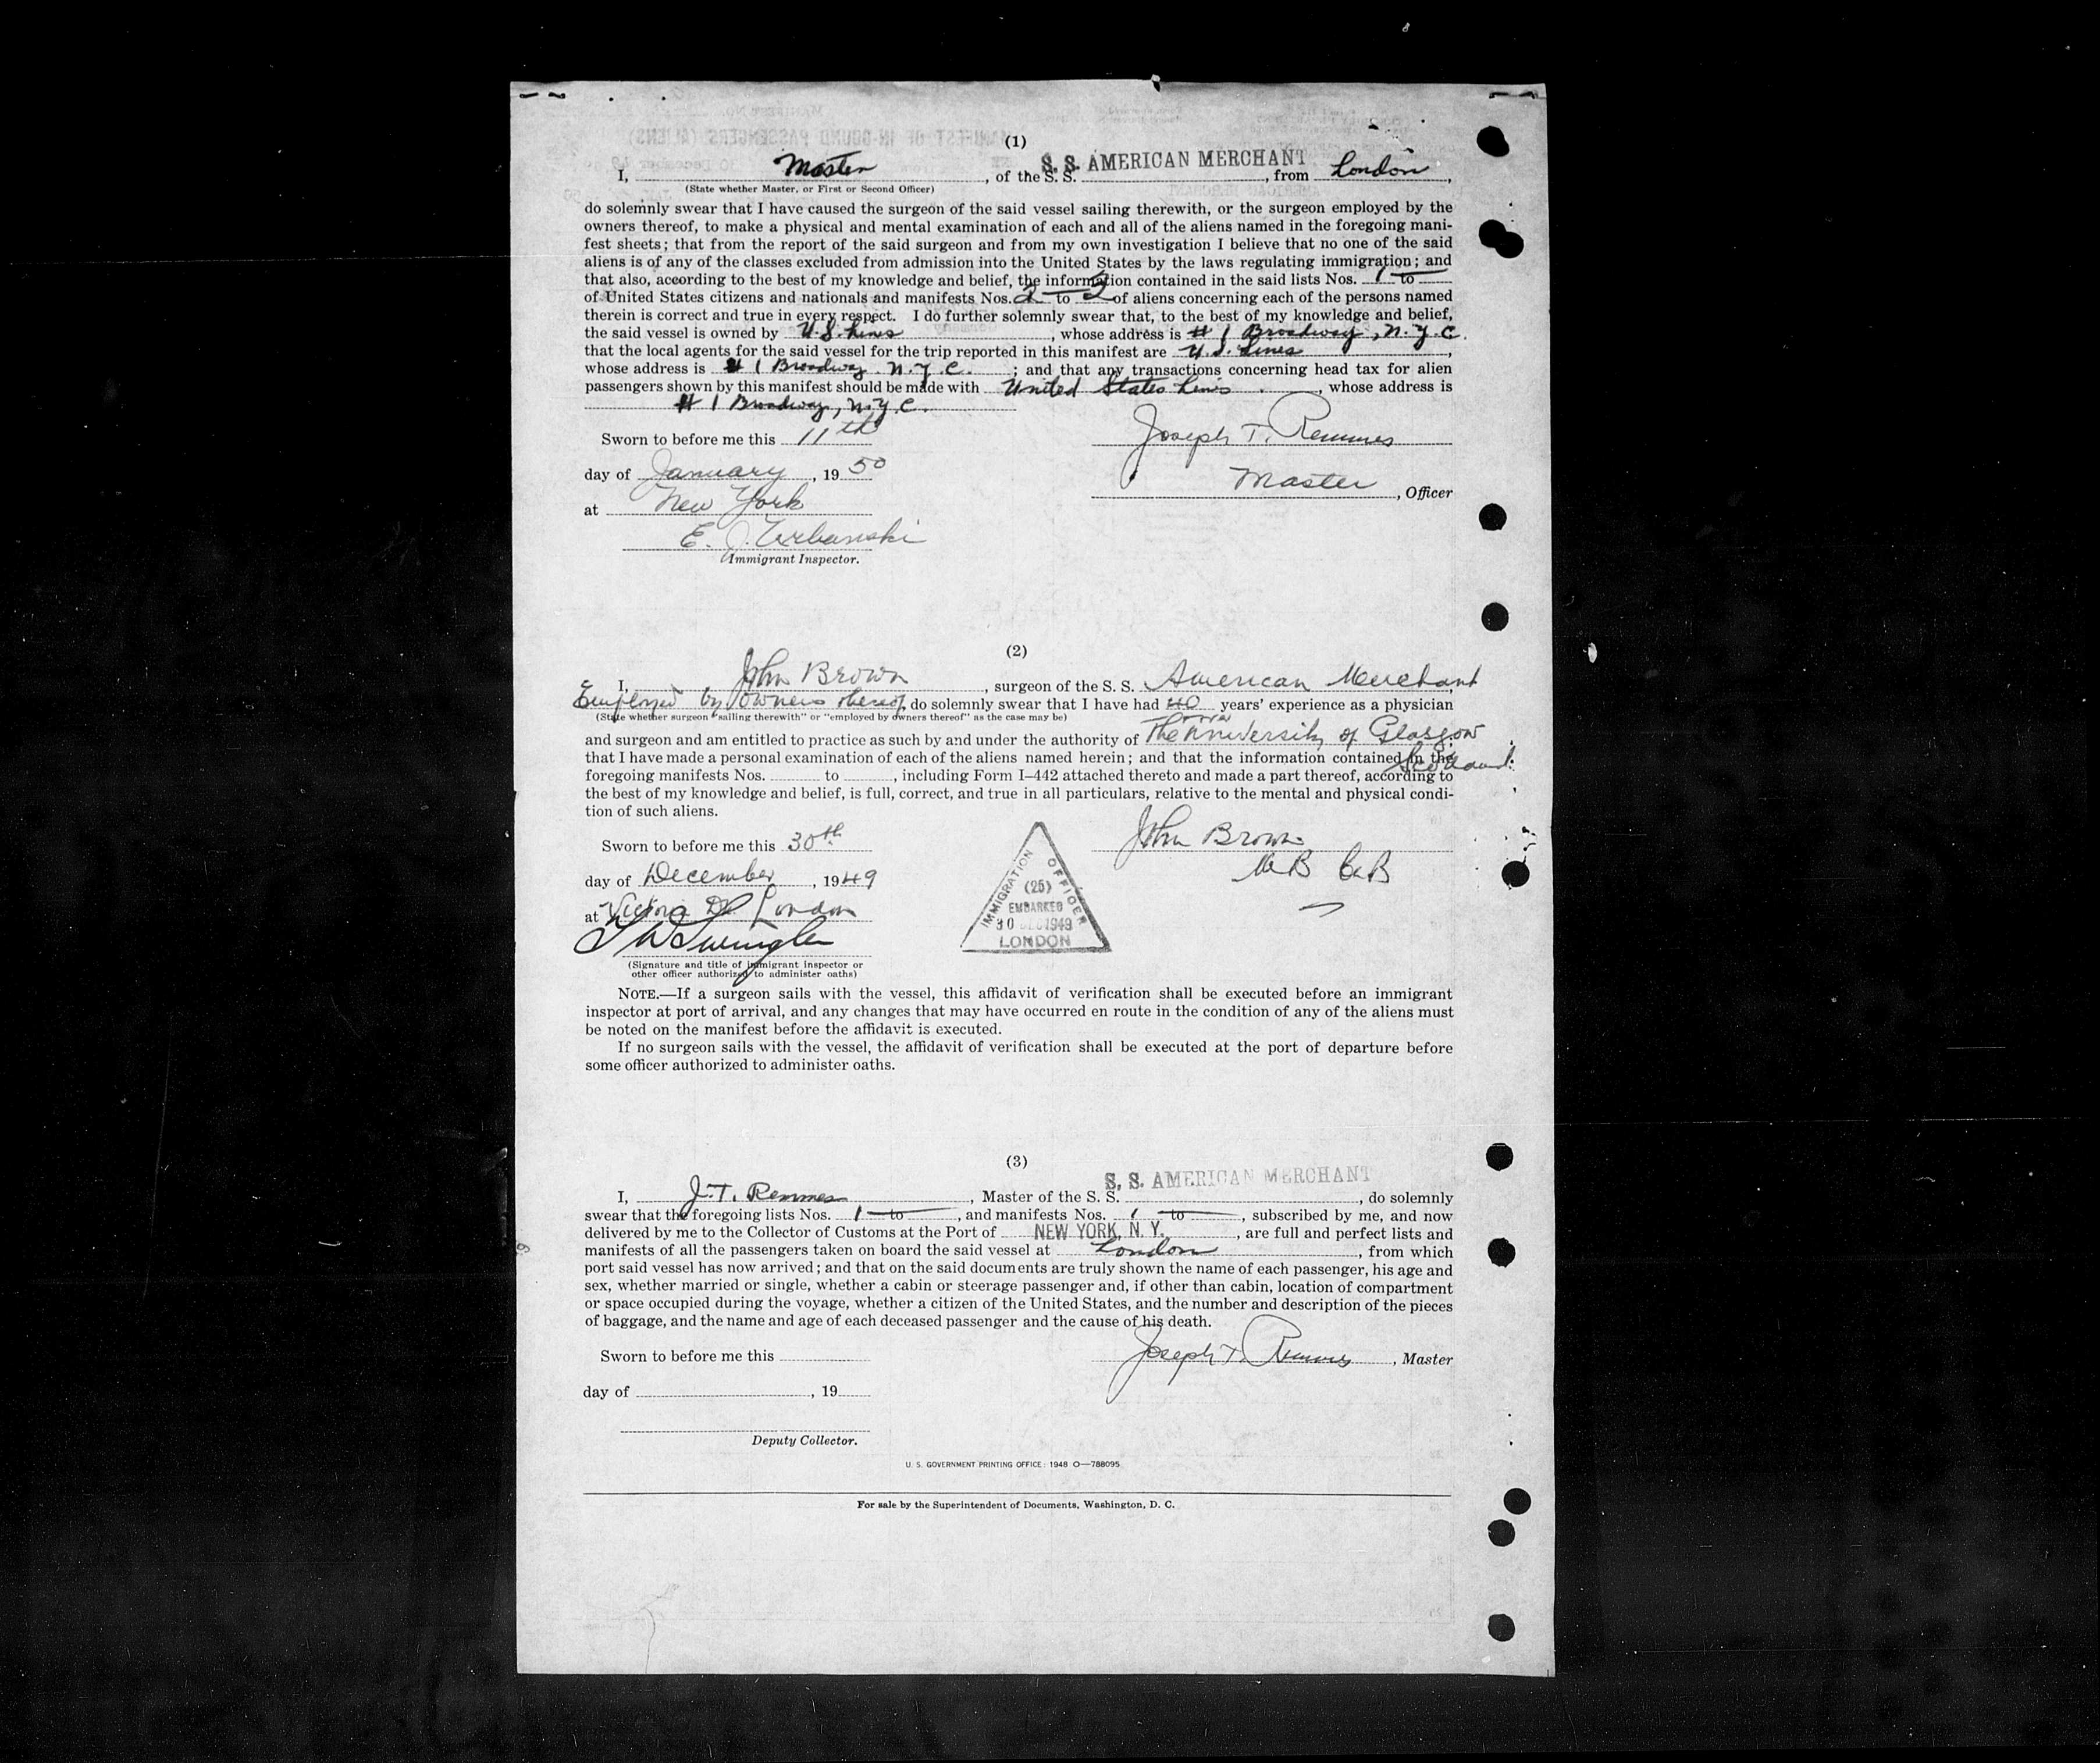 (1)
I, Master, of the S. S. S. S. AMERICAN MERCHANT, from London,
(State whether Master, or First or Second Officer)
do solemnly swear that I have caused the surgeon of the said vessel sailing therewith, or the surgeon employed by the
owners thereof, to make a physical and mental examination of each and all of the aliens named in the foregoing mani-
fest sheets; that from the report of the said surgeon and from my own investigation I believe that no one of the said
aliens is of any of the classes excluded from admission into the United States by the laws regulating immigration; and
that also, according to the best of my knowledge and belief, the information contained in the said lists Nos. 1 to
of United States citizens and nationals and manifests Nos. 2 to 2 of aliens concerning each of the persons named
therein is correct and true in every respect. I do further solemnly swear that, to the best of my knowledge and belief,
the said vessel is owned by U.S. Lines, whose address is # 1 Broadway, N.Y.C.
that the local agents for the said vessel for the trip reported in this manifest are U.S. Lines,
whose address is # 1 Broadway N.Y.C.; and that any transactions concerning head tax for alien
passengers shown by this manifest should be made with United States Lines, whose address is
# 1 Broadway, N.Y.C.
Sworn to before me this 11th
Joseph T. Remmes
day of January, 19 50
Master, Officer
at New York
E. J. Urbanski
Immigrant Inspector.
(2)
I, John Brown, surgeon of the S. S. American Merchant,
Employed by owners thereof, do solemnly swear that I have had 40 years' experience as a physician
(State whether surgeon "sailing therewith" or "employed by owners thereof" as the case may be)
and surgeon and am entitled to practice as such by and under the authority of The University of Glasgow
Scotland.
that I have made a personal examination of each of the aliens named herein; and that the information contained in the
foregoing manifests Nos. to , including Form I-442 attached thereto and made a part thereof, according to
the best of my knowledge and belief, is full, correct, and true in all particulars, relative to the mental and physical condi-
tion of such aliens.
Sworn to before me this 30th
John Brown
day of December, 1949
MB ChB
at Victoria Dk London
IMMIGRATION OFFICER
(25)
EMBARKED
30 DEC 1949
LONDON
(Signature and title of immigrant inspector or
other officer authorized to administer oaths)
NOTE.—If a surgeon sails with the vessel, this affidavit of verification shall be executed before an immigrant
inspector at port of arrival, and any changes that may have occurred en route in the condition of any of the aliens must
be noted on the manifest before the affidavit is executed.
If no surgeon sails with the vessel, the affidavit of verification shall be executed at the port of departure before
some officer authorized to administer oaths.
(3)
I, J.T. Remmes, Master of the S. S. S. S. AMERICAN MERCHANT, do solemnly
swear that the foregoing lists Nos. 1 to , and manifests Nos. 1 to , subscribed by me, and now
delivered by me to the Collector of Customs at the Port of NEW YORK, N. Y., are full and perfect lists and
manifests of all the passengers taken on board the said vessel at London, from which
port said vessel has now arrived; and that on the said documents are truly shown the name of each passenger, his age and
sex, whether married or single, whether a cabin or steerage passenger and, if other than cabin, location of compartment
or space occupied during the voyage, whether a citizen of the United States, and the number and description of the pieces
of baggage, and the name and age of each deceased passenger and the cause of his death.
Sworn to before me this
Joseph T. Remmes, Master
day of , 19
Deputy Collector.
U. S. GOVERNMENT PRINTING OFFICE: 1948 O—788095
For sale by the Superintendent of Documents, Washington, D. C.